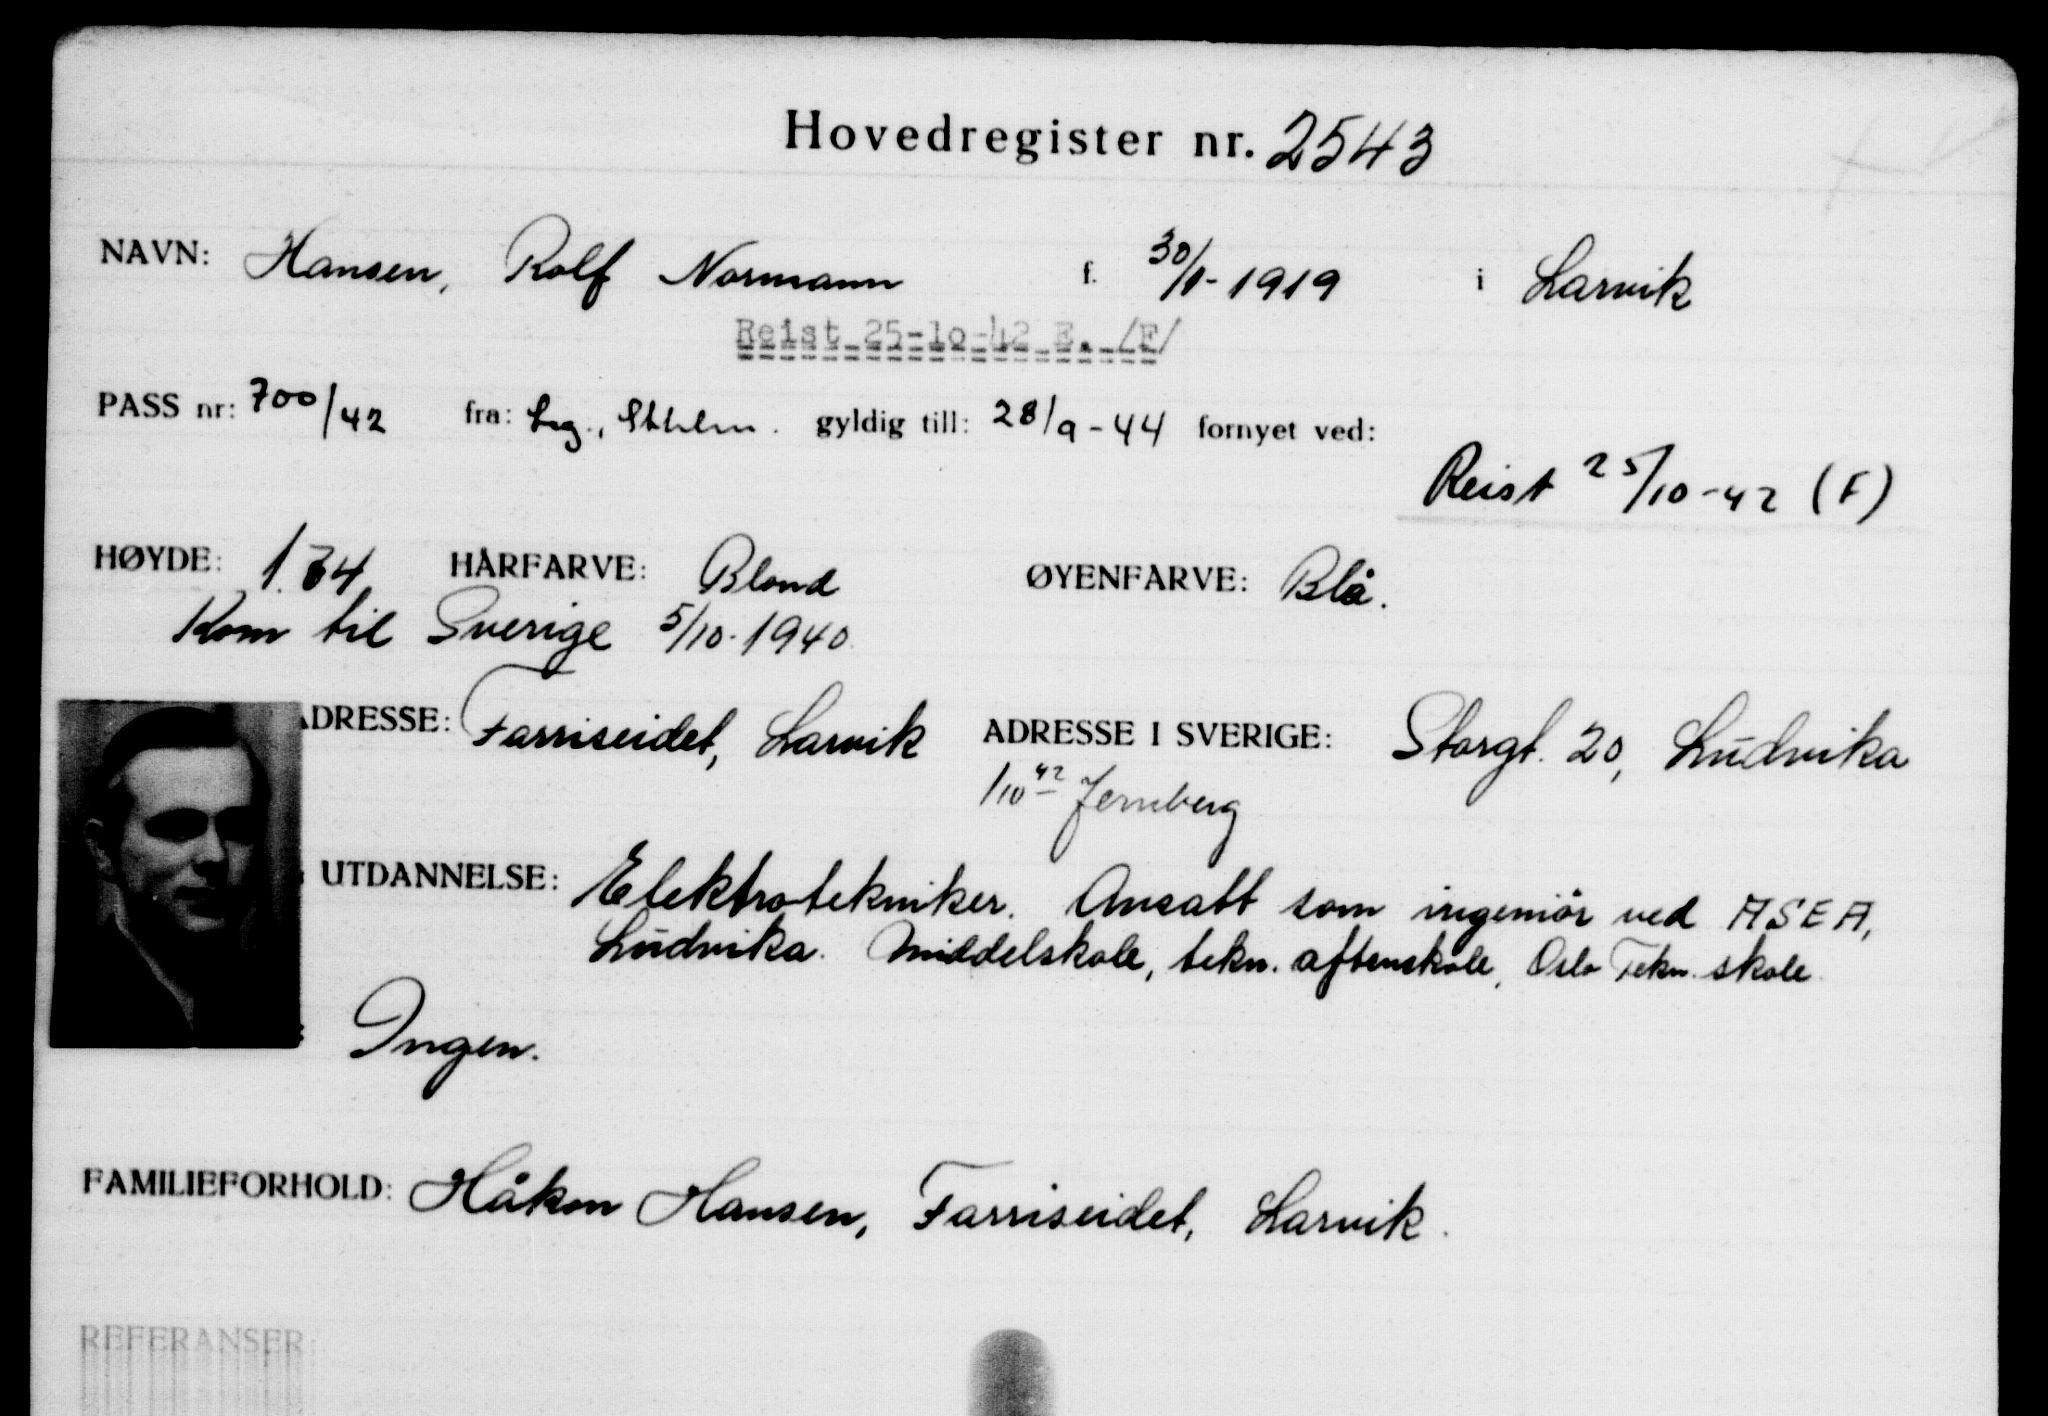 Hovedregister nr. 2543
NAVN: Hansen, Rolf Normann f. 30/1-1919 i Larvik
Reist 25-10-42 E. /F/
PASS nr: 700/42 fra: Leg., Sthlm. gyldig till: 28/9-44 fornyet ved:
Reist 25/10-42 (F)
HØYDE: 1.74 HÅRFARVE: Blond ØYENFARVE: Blå.
Kom til Sverige 5/10-1940
ADRESSE: Farriseidet, Larvik ADRESSE I SVERIGE: Storgt. 20, Ludvika
1/10 42 Jernberg
UTDANNELSE: Elektrotekniker. Ansatt som ingeniør ved ASEA,
Ludvika. Middelskole, tekn. aftenskole, Oslo Tekn. skole
: Ingen.
FAMILIEFORHOLD: Håkon Hansen, Farriseidet, Larvik.
REFERANSER: